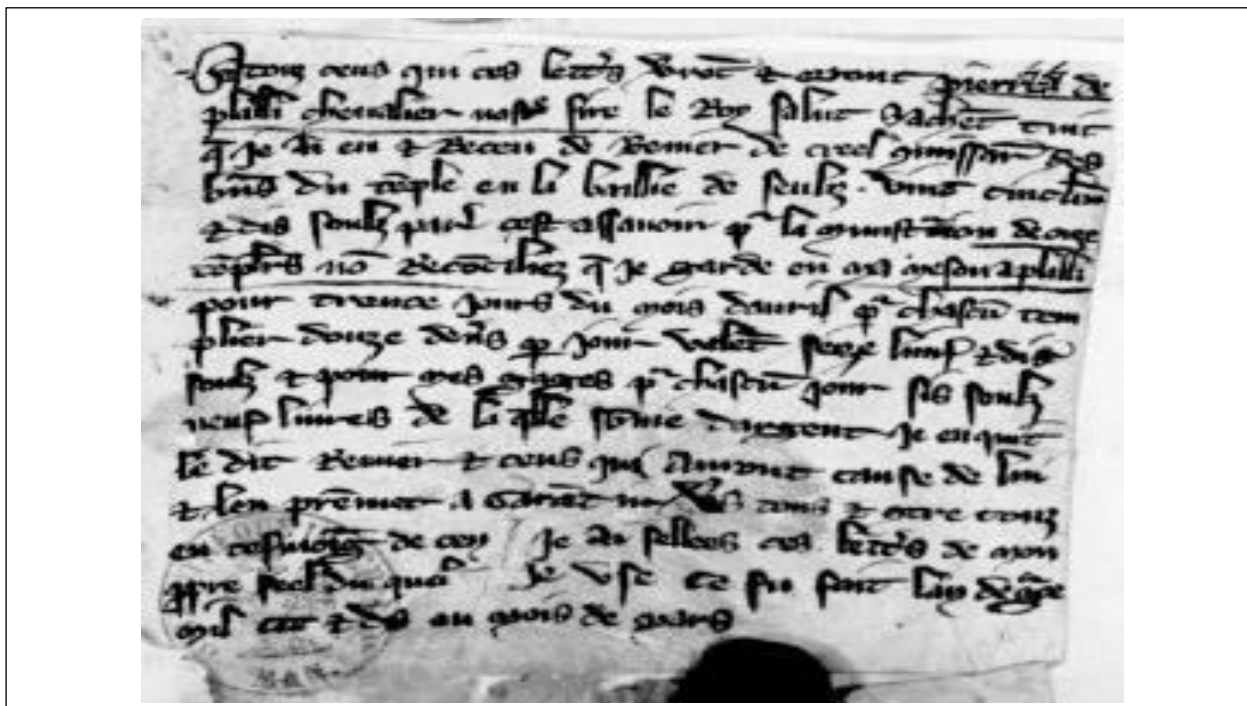 A touz ceus qui ces lettres verront et orront pierres de
plailli chevalier nostre sire le Roy salut Sachent tuit
q̄ je ai eu et Receu de Renier de creel
biens du tēple en la baillie de senliz
et dis soulz par cest assavoir pr la des onze
tēpliers nō Recōciliez q̄ je garde en ma meson a plailli
pour trente jours du mois davril pr chascū tem
plier douze den̄s par jour valent seize livres et dis
soulz et pour mes gages pr chascū jour sis soulz
neuf livres de la q̄le sōme dargent Je en quit
le dit Renier et ceus qui Auront cause de lui
et len promet A Garātir vers tous et contre touz
en tesmoing de ceu Je Ai sellees ces lettres de mon
propre seel du quel Je use Ce fu fait lan de grace
mil ccc et dis au mois de mars